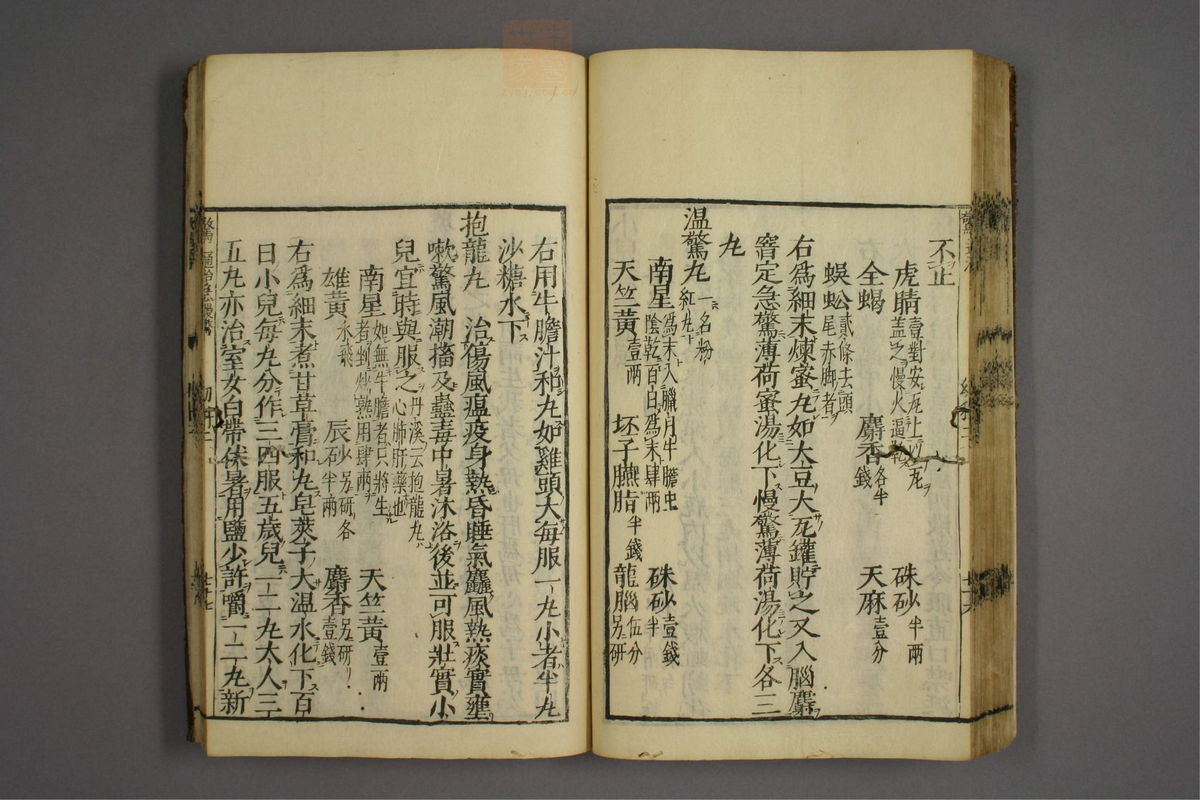 不止
虎睛壹對安瓦上以瓦蓋之慢火逼乾 硃砂半兩
全蝎 麝香各半錢 天麻壹分
蜈蚣貳條去頭尾赤脚者
右爲細末煉蜜丸如大豆大瓦罐貯之又入腦麝
窨定急驚薄荷蜜湯化下慢驚薄荷湯化下各三
丸
温驚丸一名粉紅丸
南星爲末入臘月牛膽中陰乾百日爲末肆兩 硃砂壹錢半
天竺黃壹兩 坯子臙脂半錢 龍腦伍分另研
右用牛膽汁和丸如雞頭大每服一丸小者半丸
沙糖水下
抱龍丸 治傷風瘟疫身熱昏睡氣麤風熱痰實壅
嗽驚風潮搐及蠱毒中暑沐浴後並可服壯實小
兒宜時與服之丹溪云抱龍丸心肺肝藥也
南星如無牛膽者只將生者剉炒熟用肆兩 天竺黃壹兩
雄黃水飛 辰砂另研各半兩 麝香另研壹錢
右爲細末煮甘草膏和丸皂莢子大温水化下百
日小兒每丸分作三四服五歲兒一二丸大人三
五丸亦治室女白帶伏暑用鹽少許嚼一二丸新